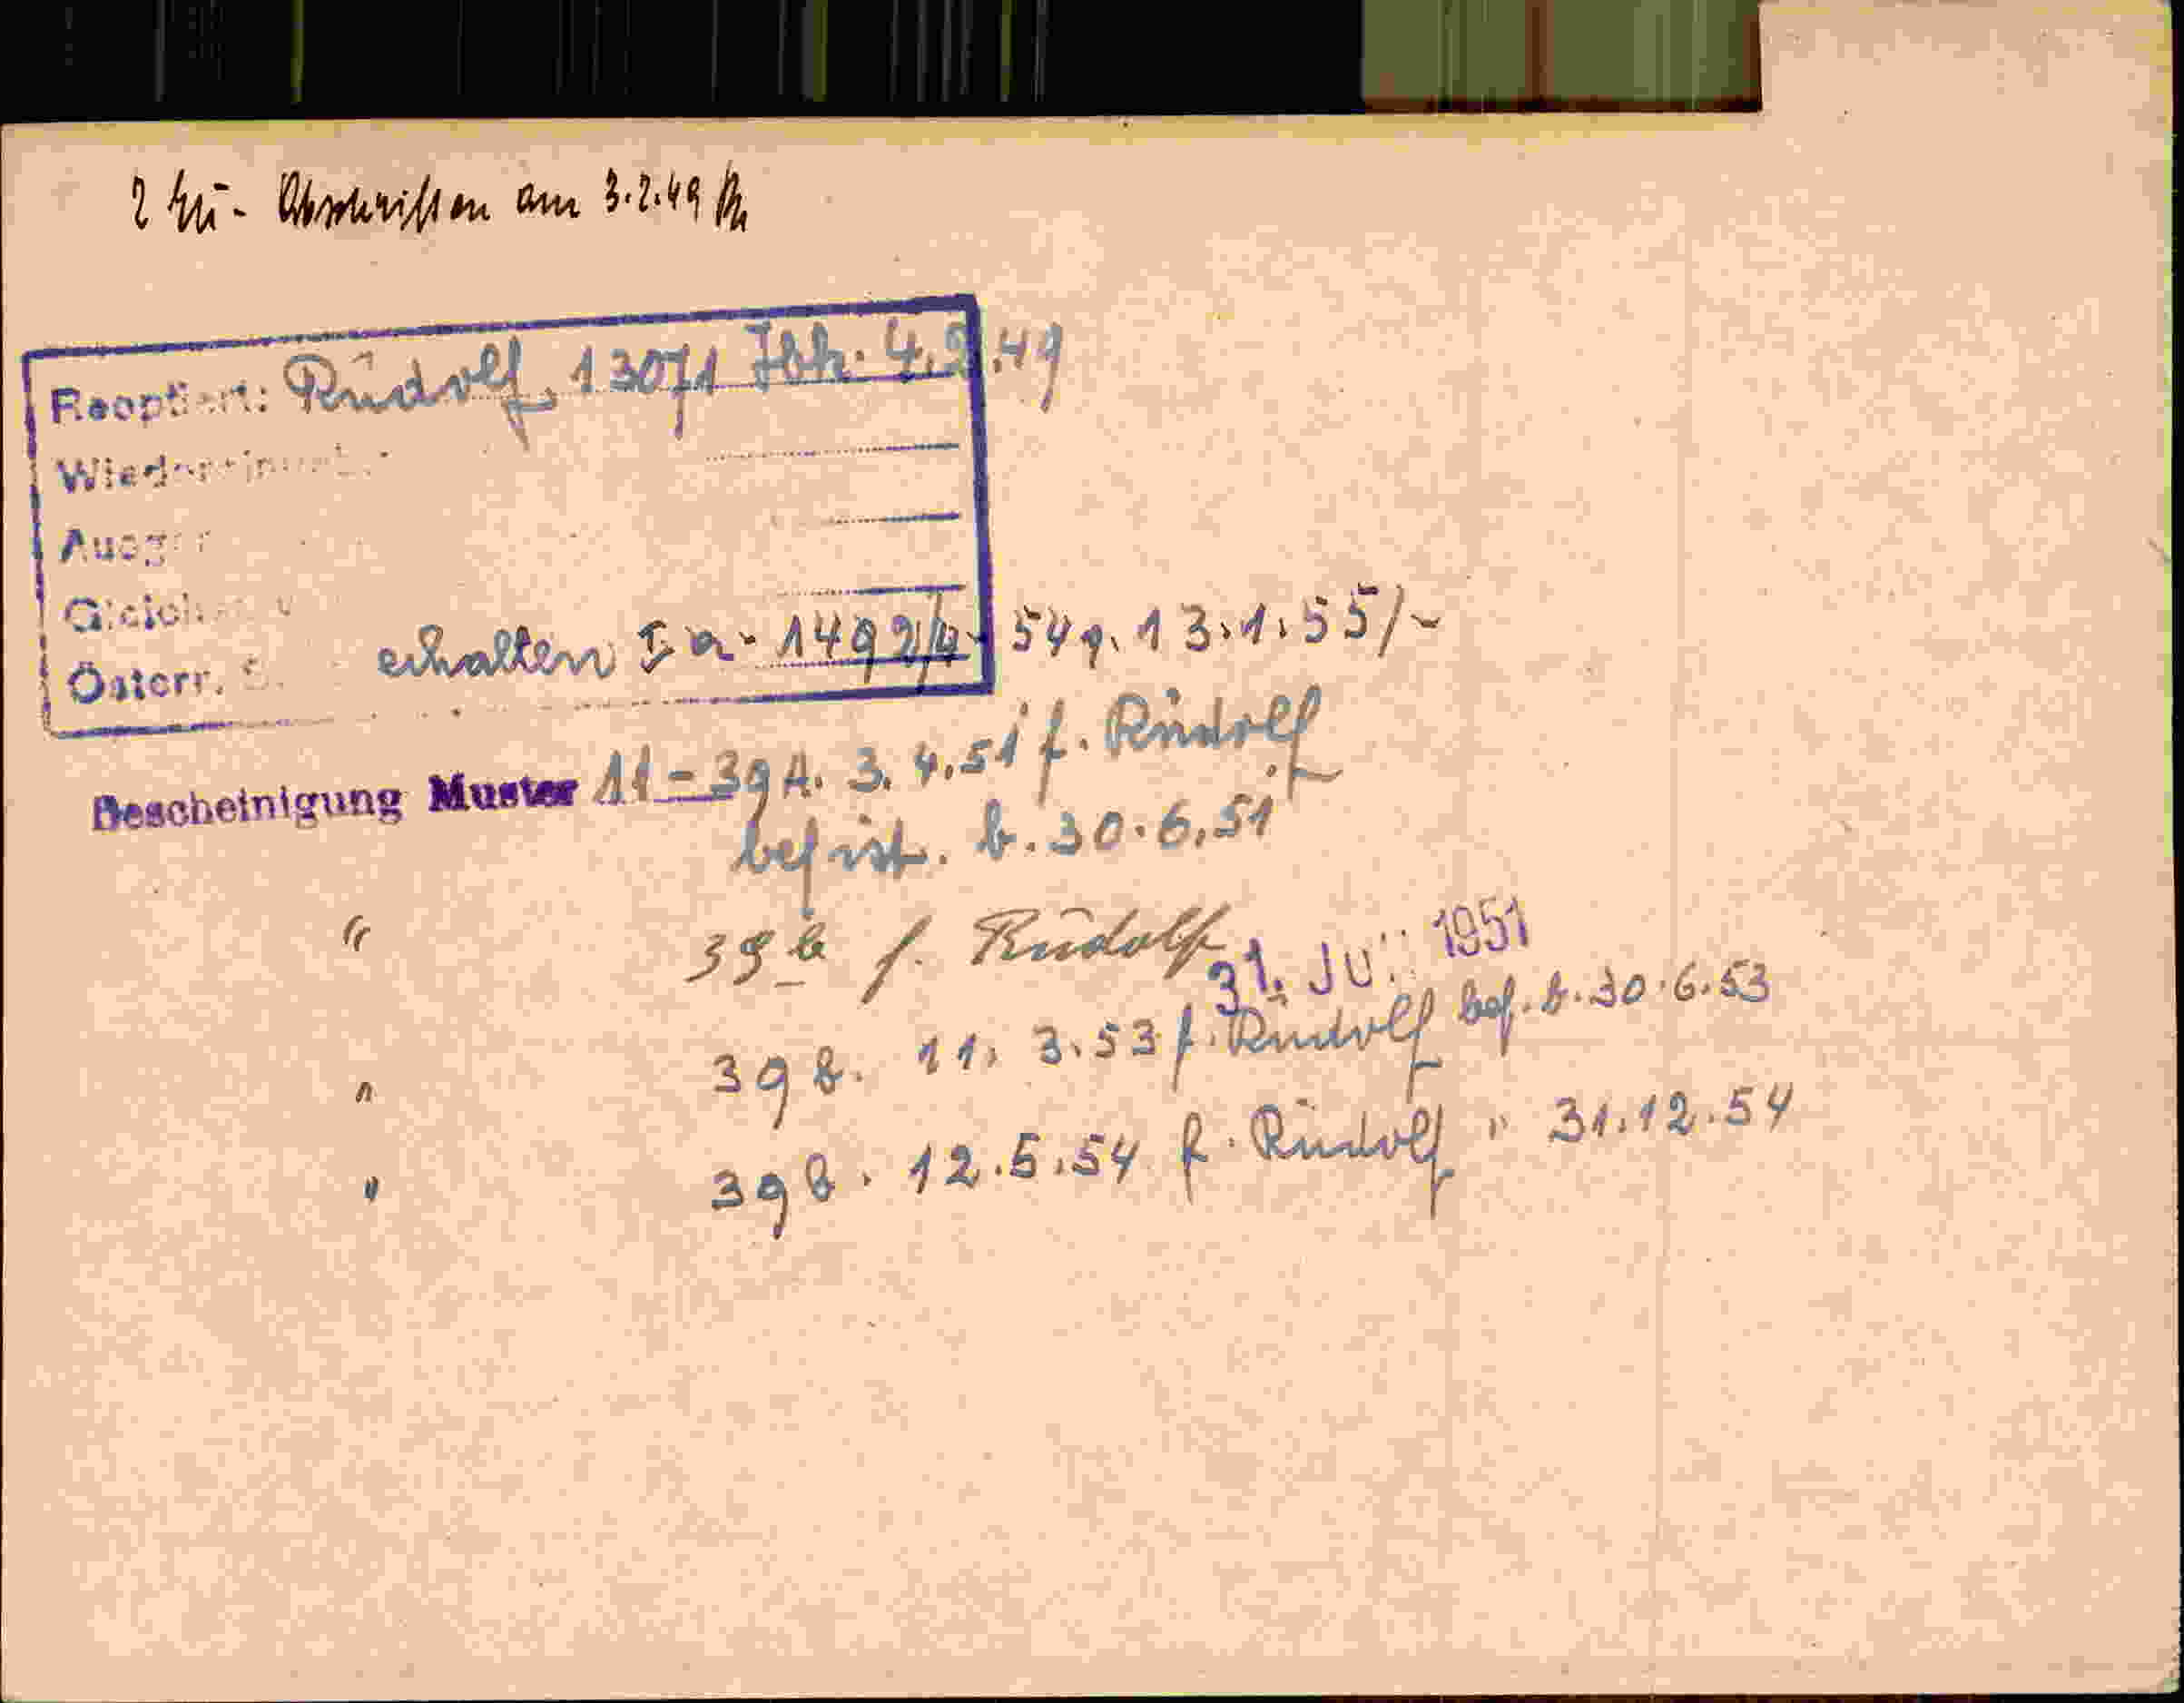 2 Abschriften am 3.2.49
Reoptiert: Rudolf, 13071 Ibk. 4.2.49
Österr. erhalten I a - 1492/4-54 v. 13.1.55/-
Bescheinigung Muster 11 - 39 A. 3.4.51 f. Rudolf
befrist. b. 30.6.51
" 39 b f. Rudolf 31. 1951
" 39 b. 11.3.53 f. Rudolf bef. b. 30.6.53
" 39 b. 12.5.54 f. Rudolf " 31.12.54